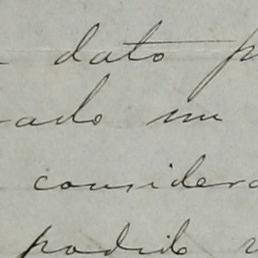 dato p
ado mi
consider
podido